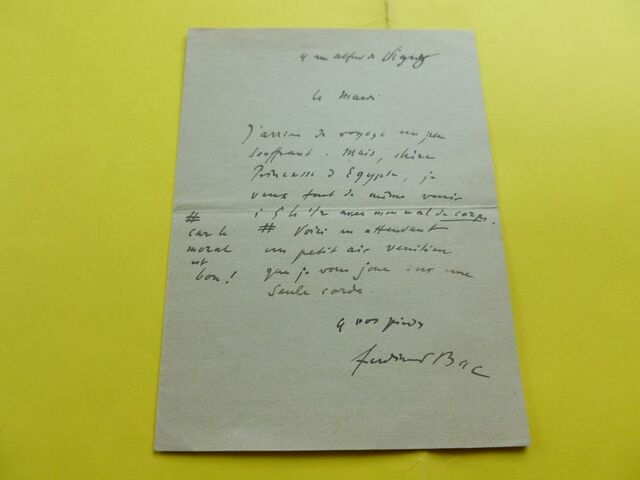 4 rue Alfred de Vigny
Le Mardi
J'arrive de voyage un peu
souffrant. Mais, chère
Princesse d'Egypte, je
veux tout de même venir
à 5 h 1/2 avec mon mal de corps.
# Voici en attendant
un petit air venitien
que je vous joue sur une
seule corde.
à vos pieds
Ferdinand Bac
#
car le
moral
est
bon!